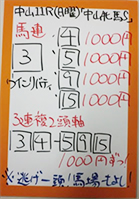 中山11R(日曜)「中山牝馬S」
馬連
3
4 1000円
5 1000円
9 1000円
15 1000円
ウインリバティ
3連複2頭軸
3 4 - 5 9 15
1000円ずつ!
※逃げ一頭、馬場もよし!